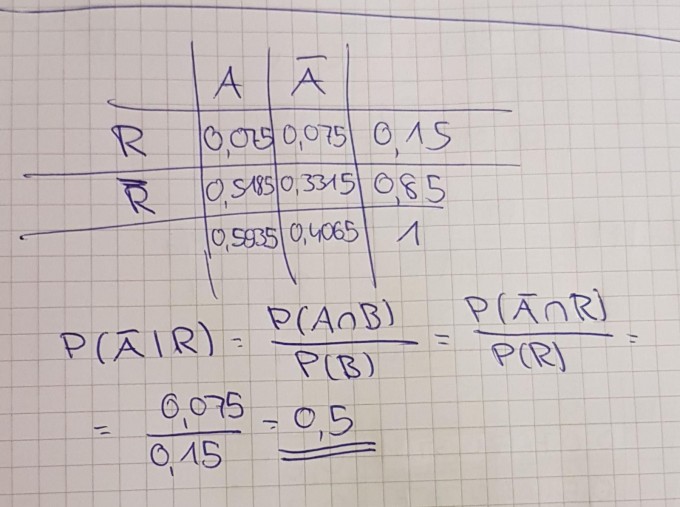 A A̅
R 0,075 0,075 0,15
R̅ 0,5185 0,3315 0,85
0,5935 0,4065 1
P(A̅|R) = P(A∩B)/P(B) = P(A̅∩R)/P(R) =
= 0,075/0,15 = 0,5